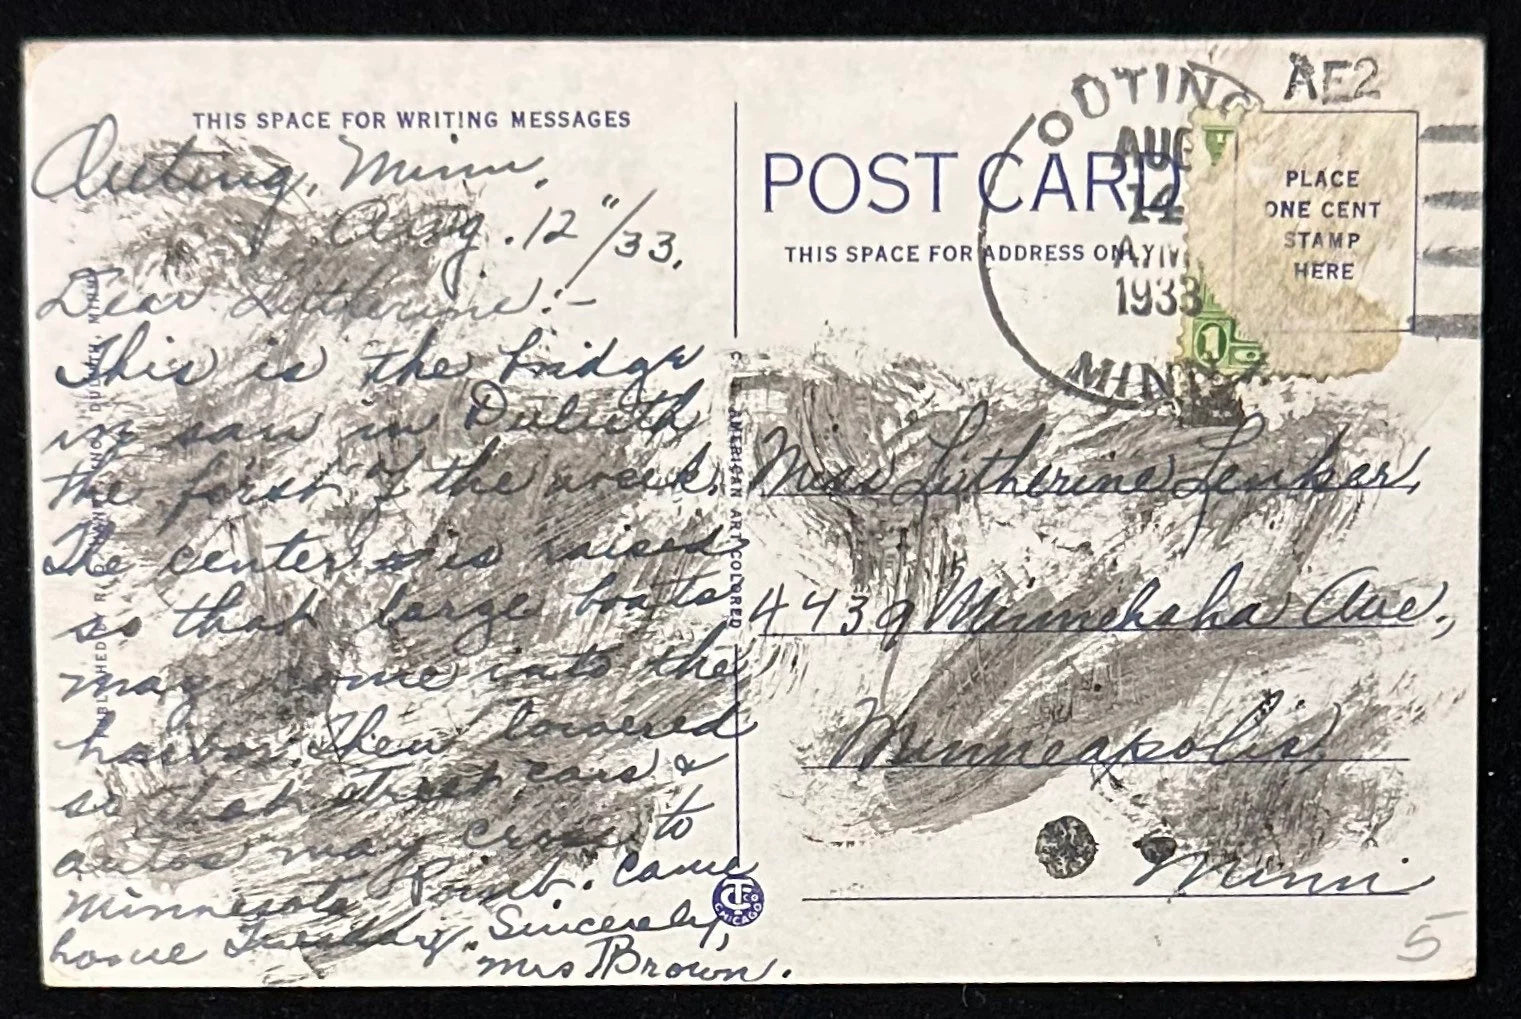 THIS SPACE FOR WRITING MESSAGES
Outing, Minn.
Aug. 12"/33.
Dear Lutherine:-
This is the bridge
we saw in Duluth
the first of the week.
The center is raised
so that large boats
may come into the
harbor. Then lowered
so that street cars &
autos may cross to
Minnesota Point. Came
home Tuesday. Sincerely,
Mrs. Brown.
DULUTH, MINN.
C. T. AMERICAN ART COLORED
CHICAGO
POST CARD
THIS SPACE FOR ADDRESS ONLY
OUTING
AUG
14
AM
1933
MINN.
AE2
PLACE
ONE CENT
STAMP
HERE
1
Miss Lutherine Lenkar,
4439 Minnehaha Ave.,
Minneapolis,
Minn
5